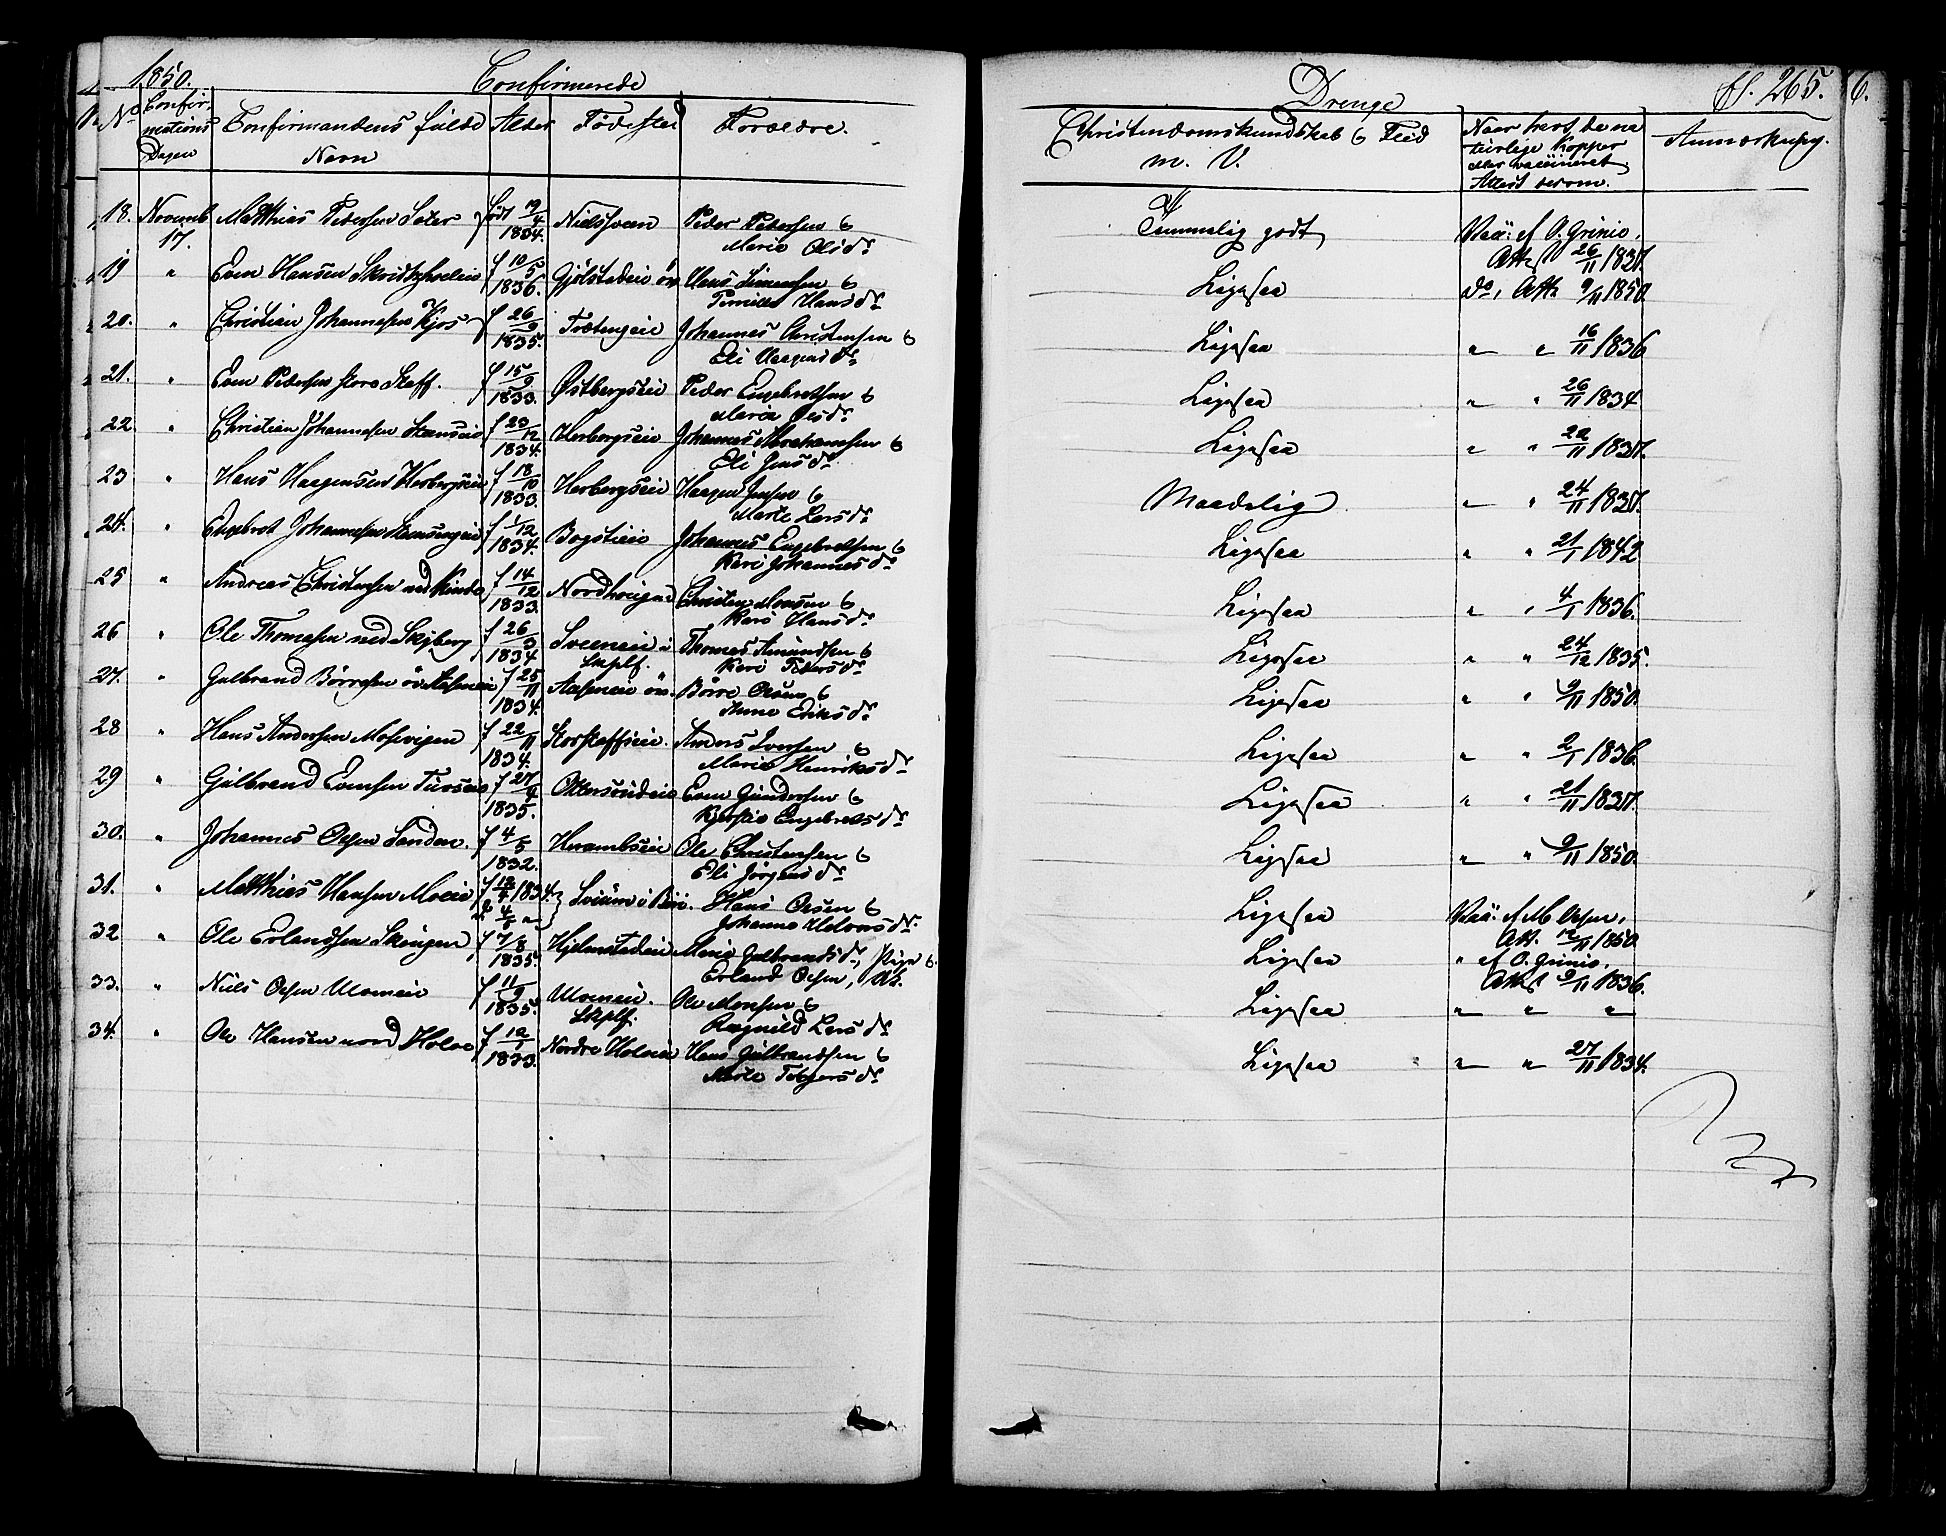 1850. Confirmerede Drenge fl. 265. 6.
No Confirmations Dagen Confirmandens fulde Navn Alder Födested Forældre. Christendomskundskab & Flid m. V. Naar havt de naturlige Kopper eller vaccineret Attest derom. Anmærkning.
18. Novemb 17. Matthias Pedersen Sater född 19/4 1834. Nielssveen Peder Pedersen &
Marie Olsdr. Temmelig godt Vaa: af O. Grinie, Att: 26/11 1837.
19 " Even Hansen f 10/5 1836. Gjölstadeie öv Hans Simensen &
Pernille Hansdr. Ligesaa do, Att: 9/11 1850
20. " Christian Johannesen Kjos f 26/9 1835. Trætengeie Johannes Christensen &
Eli Haagensdr. Ligesaa " " 16/11 1836
21. " Even Pedersen store Staff. f 15/9 1833. Østbergseie Peder Engebretsen &
Maria Olsdr. Ligesaa " " 26/11 1834
22 " Christian Johannesen Steenseie f 23/12 1834. Herbergseie Johannes Abrahamsen &
Eli Jensdr. Ligesaa " " 22/11 1837.
23 " Hans Haagensen Herbergseie f 18/10 1833. Herbergseie Haagen Jensen &
Marte Larsdr. Maadelig " " 24/11 1837.
24. " Engebret Johannesen f 1/12 1834. Bogstieie Johannes Engebretsen &
Kari Johannesdr. Ligesaa " " 21/1 1842
25 " Andreas Christensen ned Kinde f 14/12 1833. Christen Monsen &
Kari Hansdr. Ligesaa " " 4/1 1836.
26 " Ole Thomesen ned Skjberg f 26/3 1834 Sveeneie i Lkplf. Thomes Amundsen &
Kari Pedersdr. Ligesaa " " 24/12 1835.
27. " Gulbrand Börresen öv Aasmeie f 25/11 1834. Aasmeie öv. Börre Olsen &
Anne Eriksdr. Ligesaa " " 9/11 1850.
28 " Hans Andersen Mosevigen f 22/11 1834. Storstaffseie. Anders Iversen &
Marie Henriksdr. Ligesaa " " 2/1 1836.
29 " Gulbrand Evensen f 27/4 1835. Even Gundersen &
Kjersti Engebretsdr. Ligesaa " " 21/11 1837.
30. " Johannes Olsen Sanden. f 4/5 1832. Ole Christensen &
Eli Jörgensdr. Ligesaa " " 9/11 1850.
31. " Matthias Hansen Moeie f 12/4 1834. Sviüm i Biri. Hans Olsen &
Johanne Halvorsdr. Ligesaa Vaa: af M. Olsen, Att. 12/11 1850
32 " Ole Erlandsen f 7/8 1835. Hjelmstadeie Marie Gulbrandsdr., Pige &
Erland Olsen, Ligesaa " af O. Grinie, Att: 9/11 1836.
33. " Niels Olsen Moeneie f 11/9 1835. Moeneie. Lkplf. Ole Monsen &
Ragnild Larsdr. Ligesaa " " "
34. " Ole Hansen nord Holve f 12/1 1833. Nordre Holveie Hans Gulbrandsen &
Marte Torgersdr. Ligesaa " " 27/11 1834.